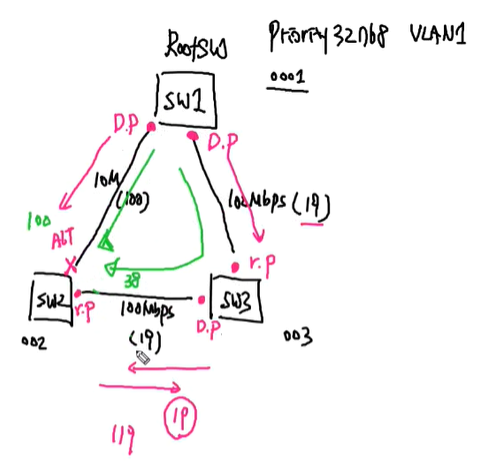 RootSW
Priority 32768 VLAN1
0001
SW1
D.P
D.P
10M
(100)
100Mbps (19)
100
ALT
r.p
38
SW2
r.p
100Mbps
(19)
D.P
SW3
002
003
119
19